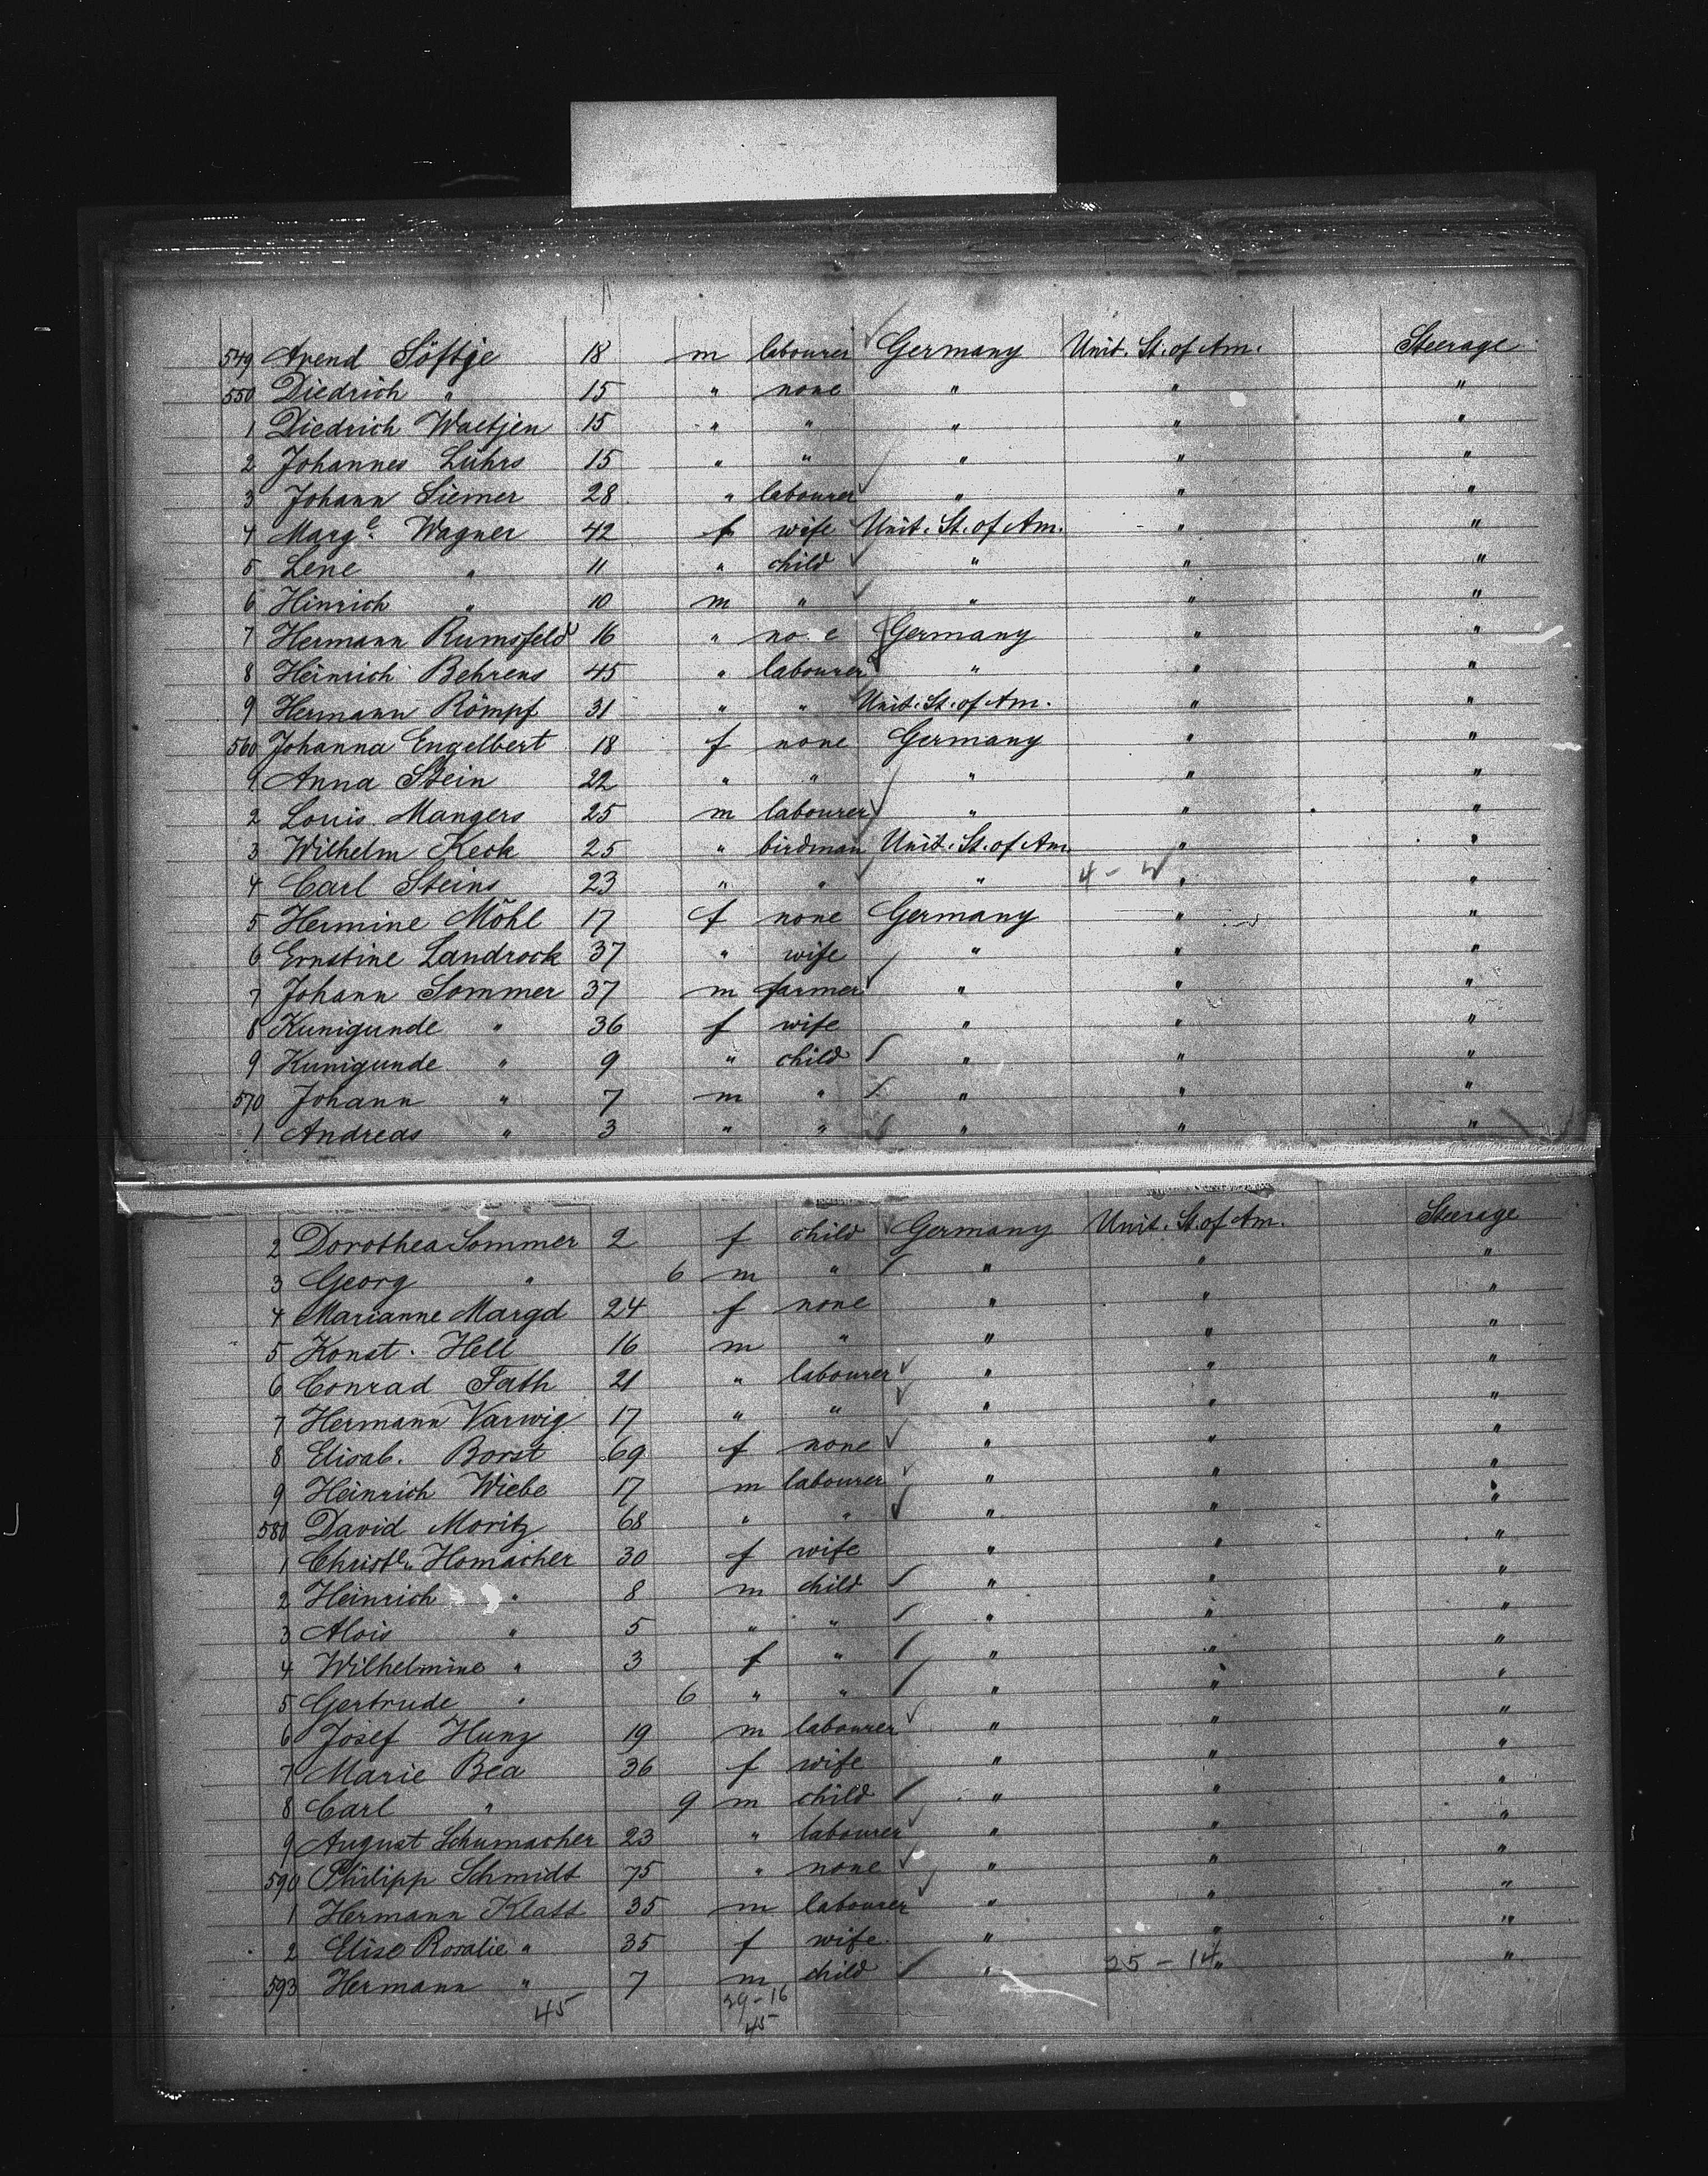 549 Arend Söftje 18 m labourer Germany Unit. St. of Am. Steerage
550 Diedrich " 15 " none " " "
1 Diedrich Waetjen 15 " " " " "
2 Johannes Lührs 15 " " " " "
3 Johann Siemer 28 " labourer " " "
4 Marg.e Wagner 42 f wife Unit. St. of Am. " "
5 Lene " 11 " child " " "
6 Hinrich " 10 m " " " "
7 Hermann Rumsfeld 16 " no e Germany " "
8 Heinrich Behrens 45 " labourer " " "
9 Hermann Römpf 31 " " Unit. St. of Am. " "
560 Johanna Engelbert 18 f none Germany " "
1 Anna Stein 22 " " " " "
2 Louis Mangers 25 m labourer " " "
3 Wilhelm Keck 25 " birdman Unit. St. of Am. " "
4 Carl Steins 23 " " " 4 - " "
5 Hermine Möhl 17 f none Germany " "
6 Ernstine Landrock 37 " wife " " "
7 Johann Sommer 37 m farmer " " "
8 Kunigunde " 36 f wife " " "
9 Kunigunde " 9 " child " " "
570 Johann " 7 m " " " "
1 Andreas " 3 " " " " "
2 Dorothea Sommer 2 f child Germany Unit. St. of Am. Steerage
3 Georg " 6 m " " " "
4 Marianne Margd 24 f none " " "
5 Konst. Hell 16 m " " " "
6 Conrad Fath 21 " labourer " " "
7 Hermann Varwig 17 " " " " "
8 Elisab. Borst 69 f none " " "
9 Heinrich Wiebe 17 m labourer " " "
580 David Moritz 68 " " " " "
1 Christ. Homacher 30 f wife " " "
2 Heinrich " 8 m child " " "
3 Alois " 5 " " " " "
4 Wilhelmine " 3 f " " " "
5 Gertrude " 6 " " " " "
6 Josef Hunz 19 m labourer " " "
7 Marie Bea 36 f wife " " "
8 Carl " 9 m child " " "
9 August Schumacher 23 " labourer " " "
590 Philipp Schmidt 75 " none " " "
1 Hermann Klatt 35 m labourer " " "
2 Elise Rosalie " 35 f wife " " "
593 Hermann " 7 m child " 25 - 14 " "
45 29-16
45